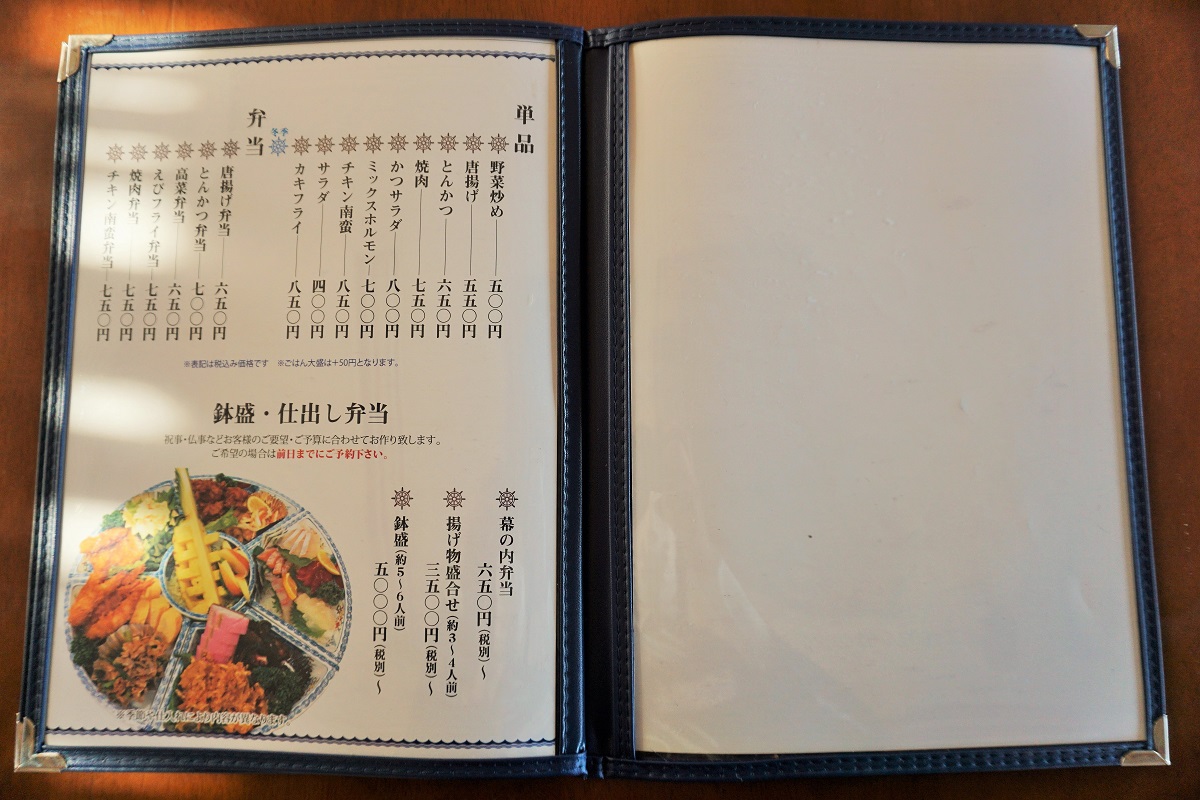 単品
野菜炒め 五〇〇円
唐揚げ 五五〇円
とんかつ 六五〇円
焼肉 七五〇円
かつサラダ 八〇〇円
ミックスホルモン 七〇〇円
チキン南蛮 八五〇円
サラダ 四〇〇円
冬季
カキフライ 八五〇円
弁当
唐揚げ弁当 六五〇円
とんかつ弁当 七〇〇円
高菜弁当 六五〇円
えびフライ弁当 七五〇円
焼肉弁当 七五〇円
チキン南蛮弁当 七五〇円
※表記は税込み価格です ※ごはん大盛は+50円となります。
鉢盛・仕出し弁当
祝事・仏事などお客様のご要望・ご予算に合わせてお作り致します。
ご希望の場合は前日までにご予約下さい。
幕の内弁当
六五〇円(税別)〜
揚げ物盛合せ(約3〜4人前)
三五〇〇円(税別)〜
鉢盛(約5〜6人前)
五〇〇〇円(税別)〜
※季節や仕入れにより内容が異なります